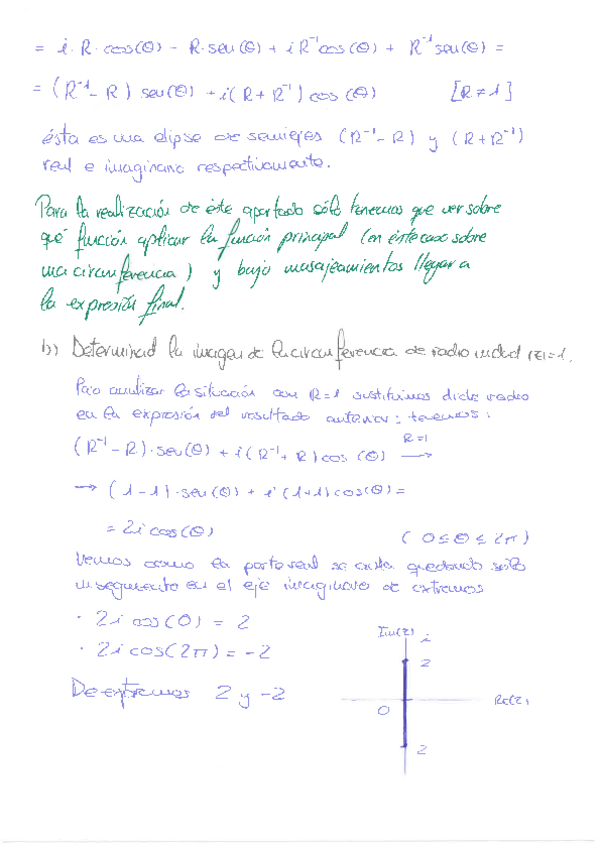 = i·R·cos(θ) - R·sen(θ) + iR⁻¹cos(θ) + R⁻¹sen(θ) =
= (R⁻¹ - R) sen(θ) + i(R + R⁻¹) cos(θ) [R ≠ 1]
ésta es una elipse de semiejes (R⁻¹ - R) y (R + R⁻¹)
real e imaginario respectivamente.
Para la realización de éste apartado sólo tenemos que ver sobre
qué función aplicar la función principal (en éste caso sobre
una circunferencia) y bajo masajeamientos llegar a
la expresión final.
b) Determinad la imagen de la circunferencia de radio unidad |z|=1.
Para analizar la situación con R=1 sustituimos dicho radio
en la expresión del resultado anterior: tenemos:
(R⁻¹ - R)·sen(θ) + i(R⁻¹ + R) cos(θ) R=1 →
→ (1-1)·sen(θ) + i(1+1)cos(θ) =
= 2i cos(θ) (0 ≤ θ ≤ 2π)
Vemos como la parte real se anula quedando sólo
un segmento en el eje imaginario de extremos
· 2i cos(0) = 2
· 2i cos(2π) = -2
De extremos 2 y -2
Im(z) i
2
Re(z)
0
2